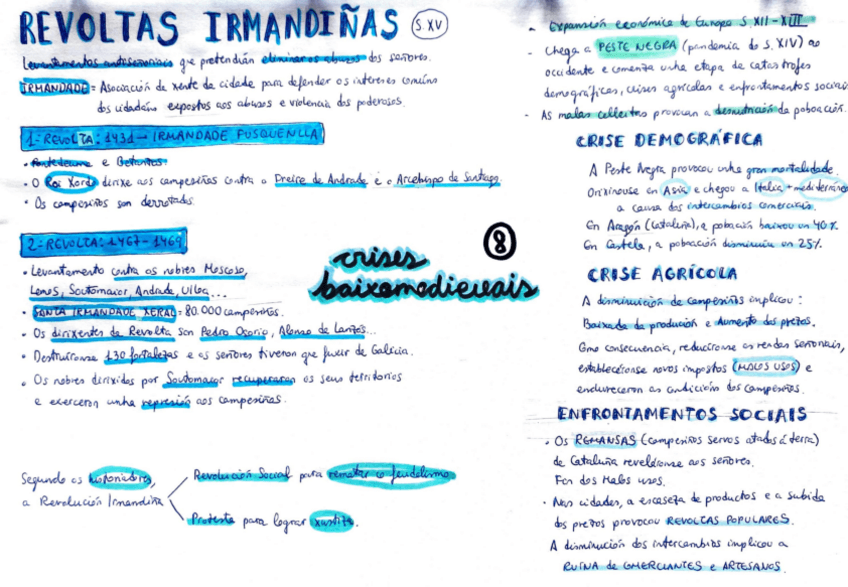 REVOLTAS IRMANDIÑAS S.XV
Levantamentos antiseñoriais que pretendían eliminar os abusos dos señores.
IRMANDADE = Asociación da xente da cidade para defender os intereses comúns
dos cidadáns expostos aos abusos e violencia dos poderosos.
1ª REVOLTA: 1431 → IRMANDADE FUSQUENLLA
• Pontedeume e Betanzos.
• O Roi Xordo dirixe aos campesiños contra o Freire de Andrade e o Arcebispo de Santiago.
• Os campesiños son derrotados.
2ª REVOLTA: 1467-1469
• Levantamento contra os nobres Moscoso,
Lemos, Soutomaior, Andrade, Ulloa...
• SANTA IRMANDADE XERAL = 80.000 campesiños.
• Os dirixentes da Revolta son Pedro Osorio, Alonso de Lanzós...
• Destruíronse 130 fortalezas e os señores tiveron que fuxir de Galicia.
• Os nobres dirixidos por Soutomaior recuperaron os seus territorios
e exerceron unha represión aos campesiños.
Segundo os historiadores,
a Revolución Irmandiña
Revolución Social para rematar co feudalismo.
Protesta para lograr xustiza.
8
crises
baixomedievais
- Expansión económica de Europa S. XII - XIII
- Chega a PESTE NEGRA (pandemia do S. XIV) ao
occidente e comenza unha etapa de catástrofes
demográficas, crises agrícolas e enfrontamentos sociais
- As malas colleitas provocan a desnutrición da poboación.
CRISE DEMOGRÁFICA
A Peste Negra provocou unha gran mortalidade.
Orixinouse en Asia e chegou a Italia + mediterráneo
a causa dos intercambios comerciais.
En Aragón (Cataluña), a poboación baixou un 40%.
En Castela, a poboación disminuíu un 25%.
CRISE AGRÍCOLA
A disminución de campesiños implicou:
Baixada da produción e Aumento dos prezos.
Como consecuencia, reducíronse as rendas señoriais,
establecéronse novos impostos (MALOS USOS) e
endureceron as condicións dos campesiños.
ENFRONTAMENTOS SOCIAIS
• Os REMANSAS (campesiños servos atados á terra)
de Cataluña reveláronse aos señores.
Fin dos Malos usos.
• Nas cidades, a escaseza de productos e a subida
dos prezos provocou REVOLTAS POPULARES.
A disminución dos intercambios implicou a
RUÍNA DE COMERCIANTES e ARTESANOS.